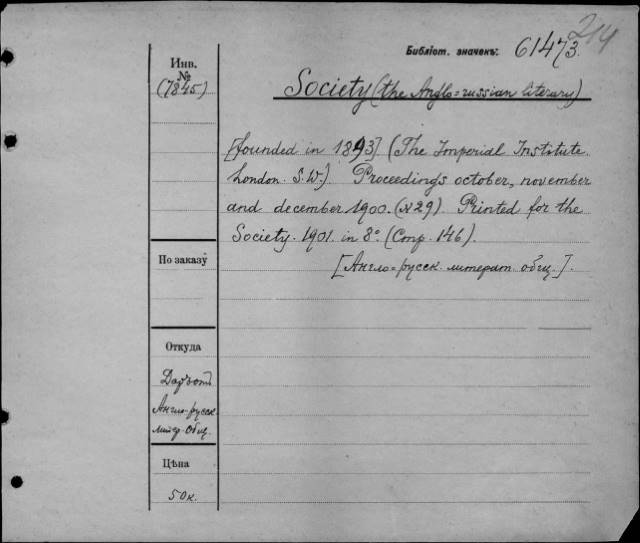 214
Библіот. значекъ: 61473.
Инв.
№
(7845)
Society (the Anglo=russian literary)
[founded in 1893] (The Imperial Institute.
London. S.W.) Proceedings october, november
and december 1900. (N 29) Printed for the
Society. 1901. in 8°. (Стр. 146).
[Англо=русск. литерат. общ.].
По заказу
Откуда
Даръ отъ
Англо-русск.
литер. Общ.
Цѣна
50 к.